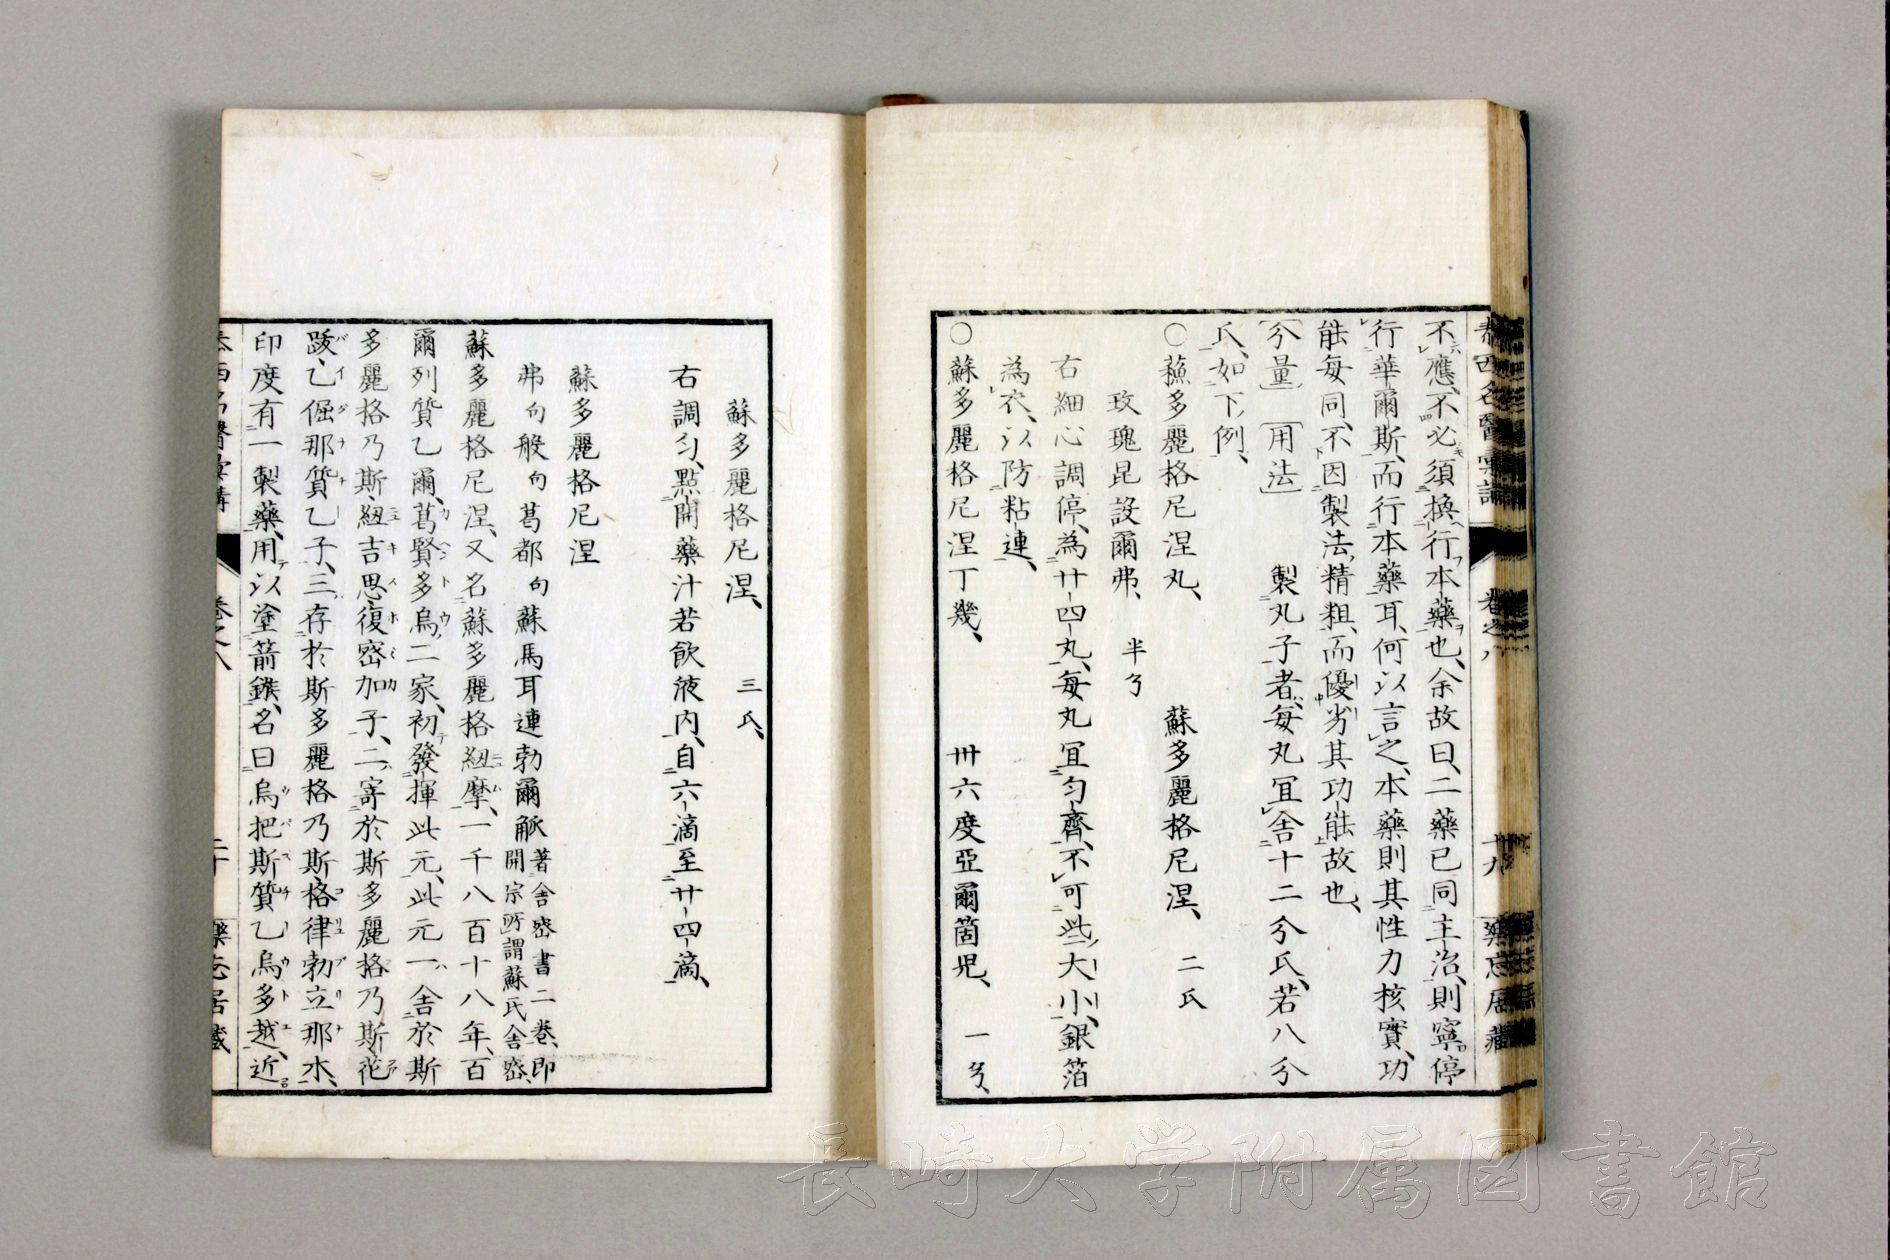 泰西名醫彙講 卷之八 十九 藥忘居藏
不應、不必須換行本藥也、余故曰、二藥已同主治、則寧停
行華爾斯、而行本藥耳、何以言之、本藥則其性力核實、功
能每同、不因製法、精粗、而優劣其功能故也、
〔分量〕〔用法〕 製丸子者、每丸宜舍十二分氏、若八分
氏、如下例、
〇蘓多麗格尼涅丸、 蘇多麗格尼涅、 二氏
玫瑰昆設爾弗、 半𠔃
右細心調停、為廿四丸、每丸宜勻齊、不可些大小、銀箔
為衣、以防粘連、
〇蘇多麗格尼涅丁幾、 卅六度亞爾箇児、 一𠔃、
蘇多麗格尼涅、 三氏、
右調勻、點開藥汁若飲液內、自六滴至廿四滴、
蘇多麗格尼涅
弗句般句葛都句蘇馬耳連勃爾觚著舍密書二卷、即開宗所謂蘇氏舍密、
蘇多麗格尼涅、又名蘇多麗格紐摩、一千八百十八年、百
爾列質乙爾、葛賢多烏、二家、初發揮此元、此元一舍於斯
多麗格乃斯、紐吉思、復密加子、二寄於斯多麗格乃斯、花
跋、乙倔那質乙子、三、存於斯多麗格乃斯、格律勃立那木、
印度有一製藥、用以塗箭鏃、名曰烏把斯質乙烏多越、近
泰西名醫彙講 卷之八 二十 藥忘居藏
長崎大学附属図書館